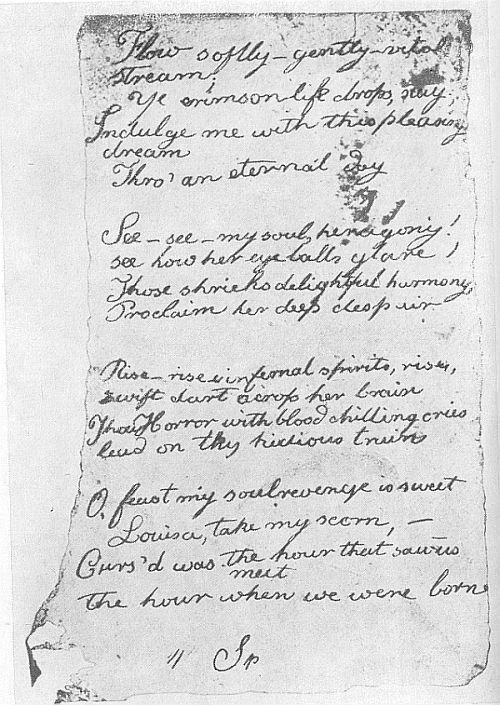 Flow softly – gently – vital
stream;
Ye crimson life drops, stay,
Indulge me with this pleasing
dream
Thro' an eternal day
See – see – my soul, her agony!
see how her eye balls glare!
Those shrieks delightful harmony,
Proclaim her deep despair
Rise – rise infernal spirits, rise,
swift dart across her brain
Thou Horror with blood chilling cries
lead on thy hidious train
O, feast my soul revenge is sweet
Louisa, take my scorn, –
Curs'd was the hour that saw us
meet
the hour when we were born